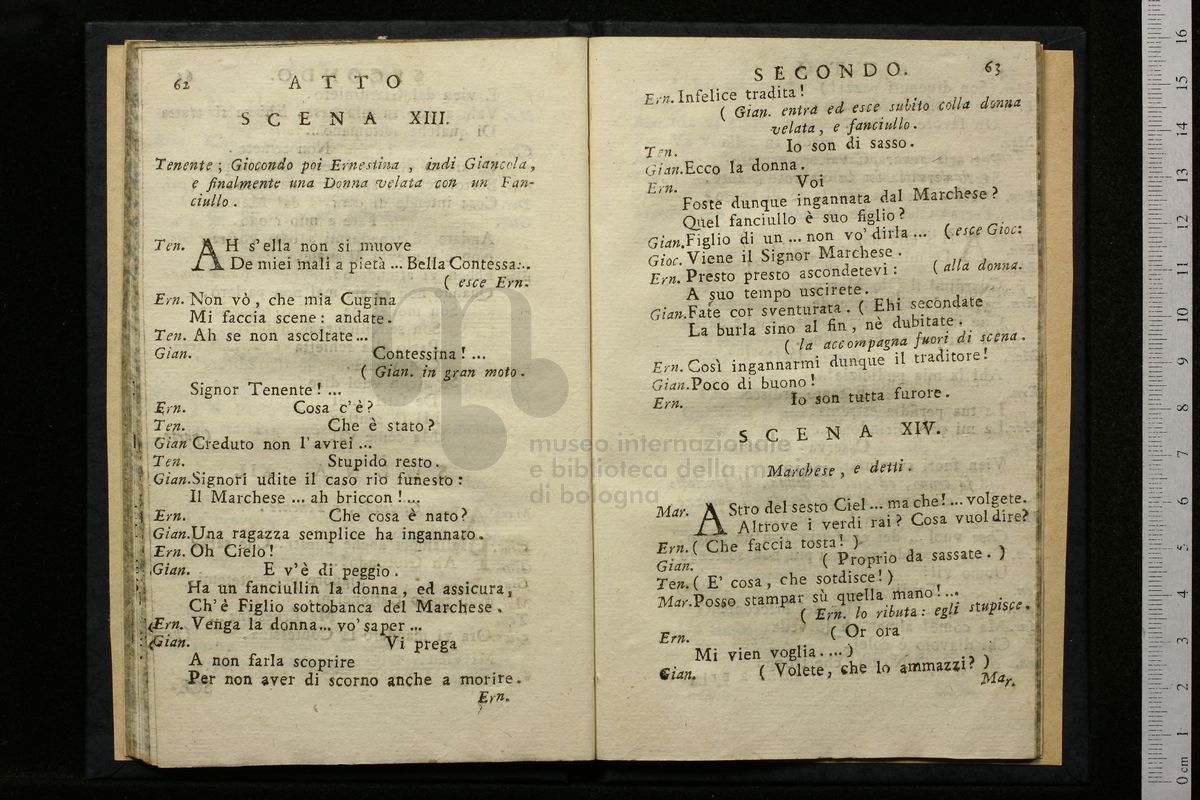 62
ATTO
SCENA XIII.
Tenente ; Giocondo poi Ernestina , indi Giancola ,
e finalmente una Donna velata con un Fan-
ciullo .
Ten. AH s'ella non si muove
De miei mali a pietà ... Bella Contessa...
( esce Ern.
Ern. Non vò , che mia Cugina
Mi faccia scene : andate .
Ten. Ah se non ascoltate ...
Gian. Contessina ! ...
( Gian. in gran moto .
Signor Tenente ! ...
Ern. Cosa c'è ?
Ten. Che è stato ?
Gian Creduto non l'avrei ...
Ten. Stupido resto .
Gian. Signori udite il caso rio funesto :
Il Marchese ... ah briccon ! ...
Ern. Che cosa è nato ?
Gian. Una ragazza semplice ha ingannato .
Ern. Oh Cielo !
Gian. E v'è di peggio .
Ha un fanciullin la donna , ed assicura ,
Ch'è Figlio sottobanca del Marchese .
Ern. Venga la donna ... vo' saper ...
Gian. Vi prega
A non farla scoprire
Per non aver di scorno anche a morire .
Ern.
SECONDO. 63
Ern. Infelice tradita !
( Gian. entra ed esce subito colla donna
velata , e fanciullo .
Ten. Io son di sasso .
Gian. Ecco la donna .
Ern. Voi
Foste dunque ingannata dal Marchese ?
Quel fanciullo è suo figlio ?
Gian. Figlio di un ... non vo' dirla ... ( esce Gioc:
Gioc. Viene il Signor Marchese .
Ern. Presto presto ascondetevi : ( alla donna .
A suo tempo uscirete .
Gian. Fate cor sventurata . ( Ehi secondate
La burla sino al fin , nè dubitate .
( la accompagna fuori di scena .
Ern. Così ingannarmi dunque il traditore !
Gian. Poco di buono !
Ern. Io son tutta furore .
SCENA XIV.
Marchese , e detti .
Mar. AStro del sesto Ciel ... ma che ! ... volgete .
Altrove i verdi rai ? Cosa vuol dire ?
Ern. ( Che faccia tosta ! )
Gian. ( Proprio da sassate . )
Ten. ( E' cosa , che sotdisce ! )
Mar. Posso stampar sù quella mano ! ...
( Ern. lo ributa : egli stupisce .
Ern. ( Or ora
Mi vien voglia . ... )
Gian. ( Volete , che lo ammazzi ? )
Mar.
museo internazionale
e biblioteca della m
di bologna
0 cm 1 2 3 4 5 6 7 8 9 10 11 12 13 14 15 16